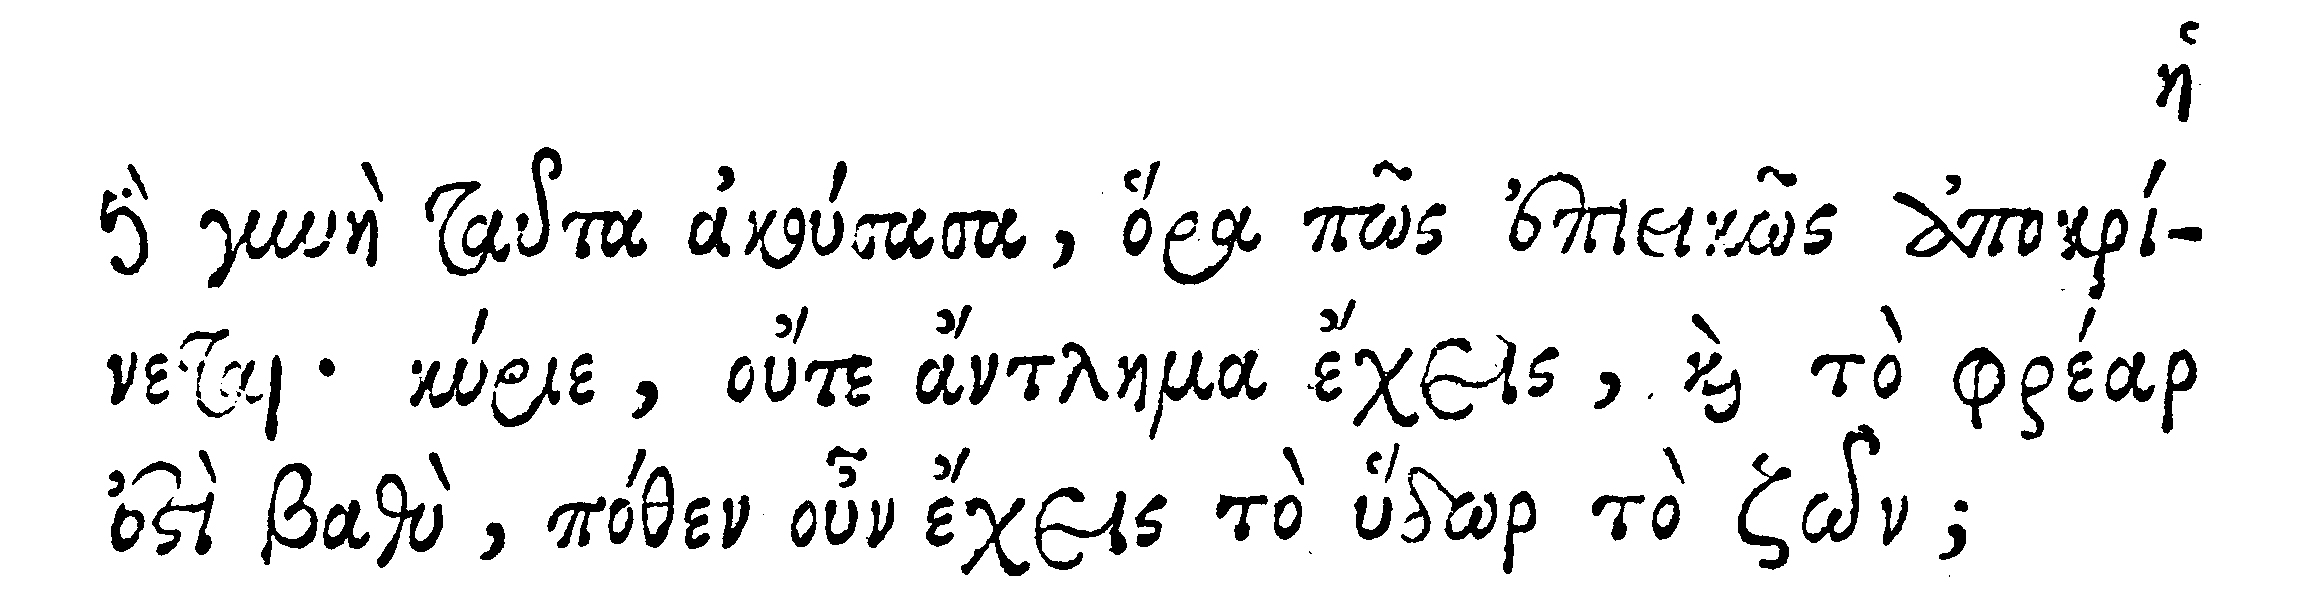 ἡ
δὲ γυνὴ ταῦτα ἀκούσασα, ὅρα πῶς ἐπιεικῶς ἀποκρί-
νεται· κύριε, οὔτε ἄντλημα ἔχεις, καὶ τὸ φρέαρ
ἐστὶ βαθὺ, πόθεν οὖν ἔχεις τὸ ὕδωρ τὸ ζῶν;